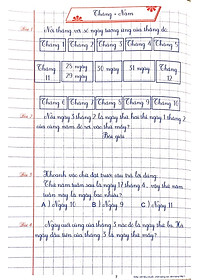 Tháng - Năm
Bài 1
Nối tháng với số ngày tương ứng của tháng đó.
Tháng 1
Tháng 2
Tháng 3
Tháng 4
Tháng 5
Tháng 11
28 ngày
29 ngày
30 ngày
31 ngày
Tháng 12
Tháng 6
Tháng 7
Tháng 8
Tháng 9
Tháng 10
Bài 2
Nếu ngày 3 tháng 2 là ngày thứ hai thì ngày 1 tháng 2
của cùng năm đó rơi vào thứ mấy?
Bài giải
Bài 3
Khoanh vào chữ đặt trước câu trả lời đúng.
Thứ năm tuần sau là ngày 17 tháng 4, vậy thứ năm
tuần này là ngày nào?
A) Ngày 10
B) Ngày 9
C) Ngày 11
Bài 4
Ngày cuối cùng của tháng 5 nào đó là ngày thứ ba. Hỏi
ngày đầu tiên của tháng 5 là ngày thứ mấy?